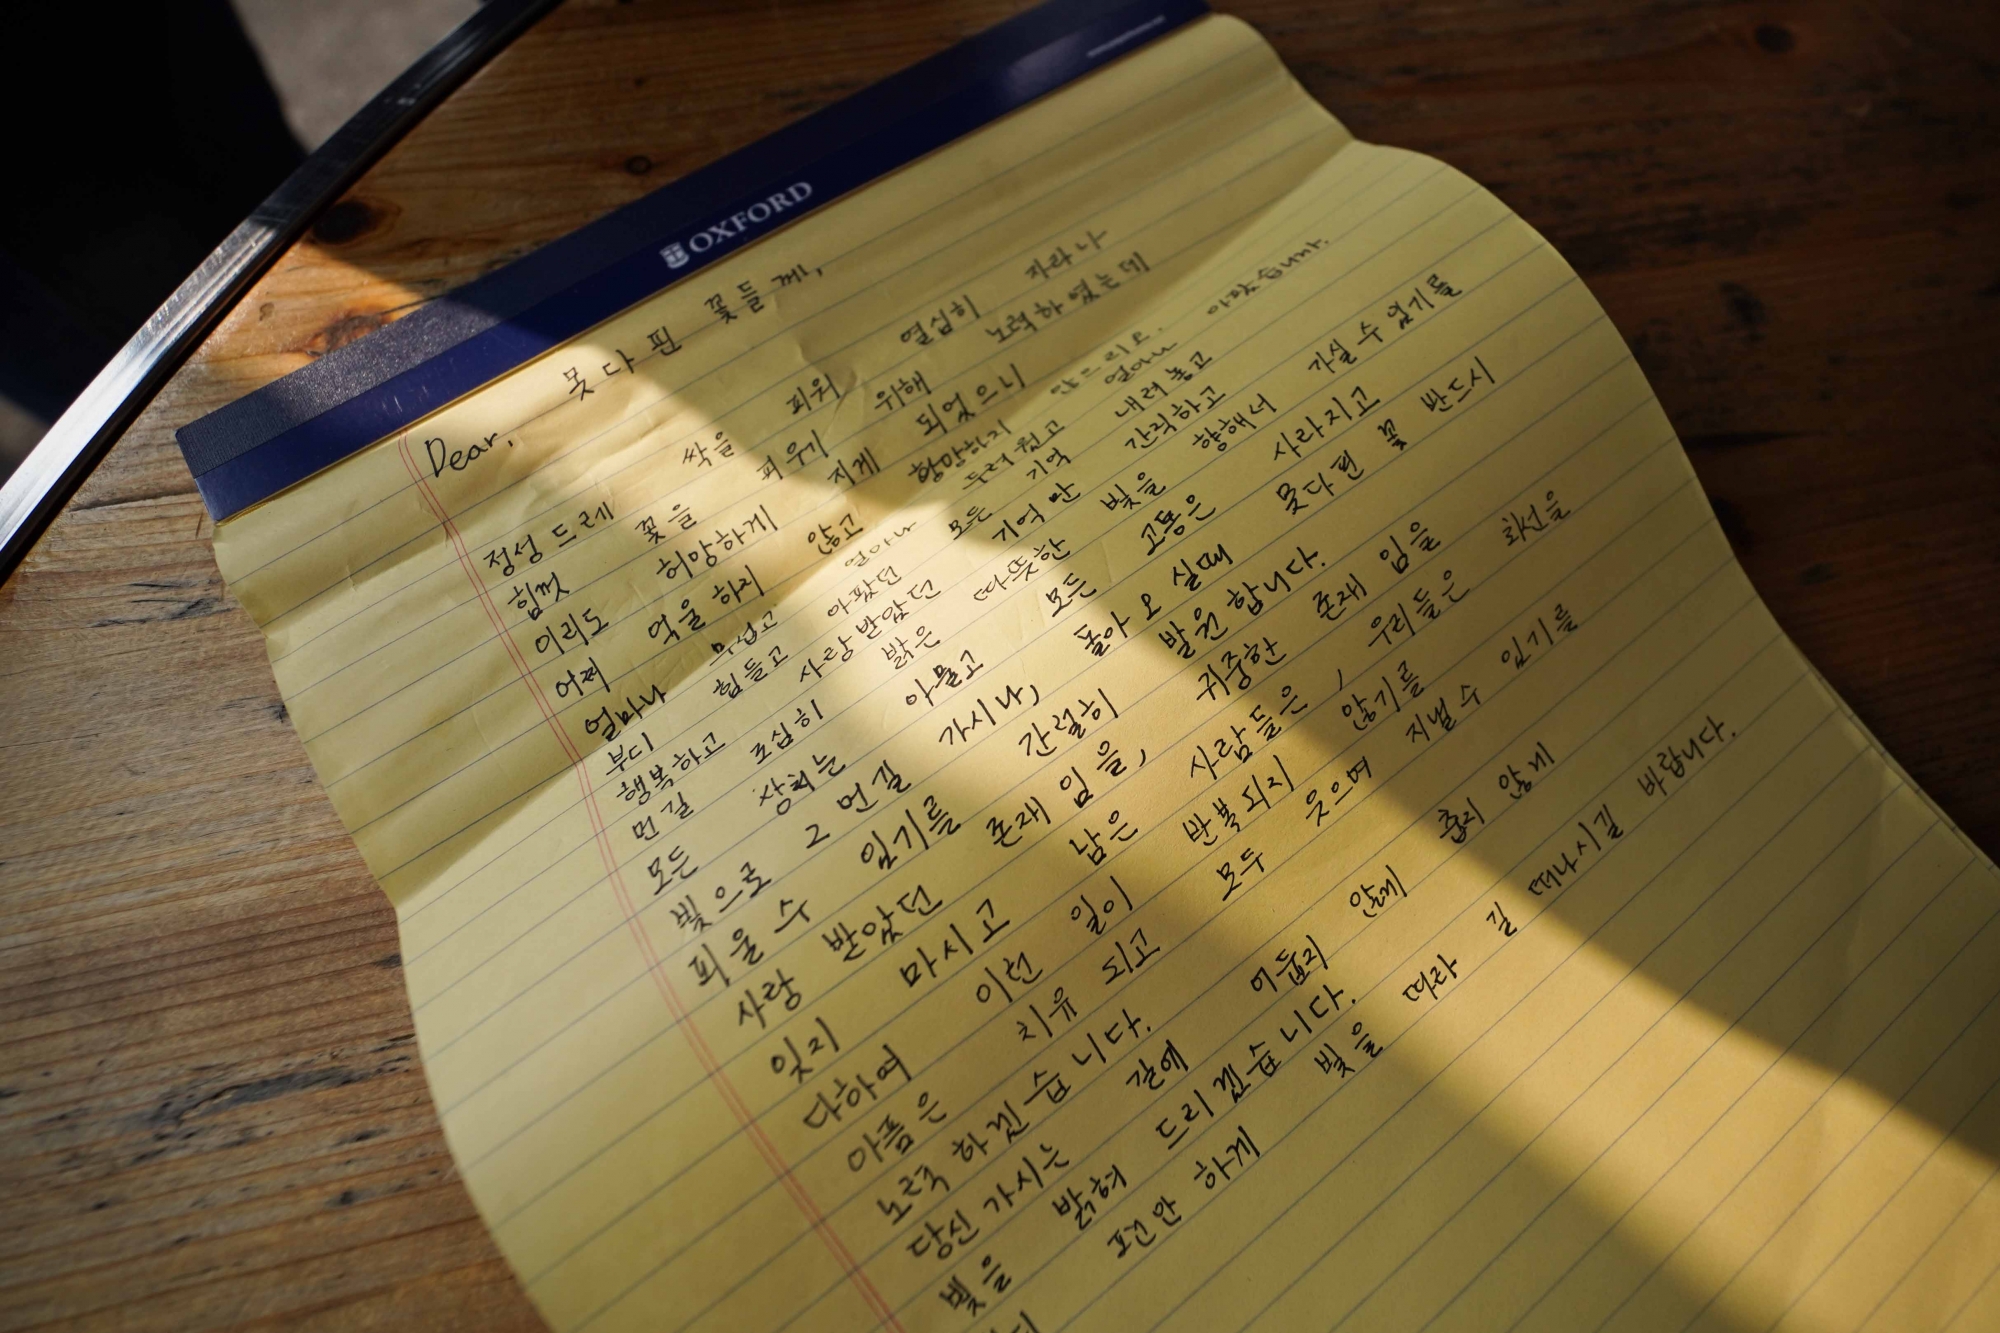 OXFORD
Dear, 못다 핀 꽃들께,
정성 드레 싹을 피워 열심히 자라나
힘껏 꽃을 피우기 위해 노력하였는데
이리도 허망하게 지게 되었으니
어찌 억울하지 않고 황망하지 안드리오.
얼마나 무섭고 얼마나 두려웠고 얼마나 아팠습니까.
부디 힘들고 아팠던 모든 기억 내려놓고
행복하고 사랑받았던 기억만 간직하고
먼길 조심히 밝은 따뜻한 빛을 향해서 가실 수 있기를
모든 상처는 아물고 모든 고통은 사라지고
빛으로 그 먼길 가시나, 돌아오실때 못다핀 꽃 반드시
피울 수 있기를 간절히 발원합니다.
사랑 받았던 존재임을, 귀중한 존재임을
잊지 마시고 남은 사람들은, 우리들은 최선을
다하여 이런 일이 반복되지 않기를
아픔은 치유 되고 모두 웃으며 지낼 수 있기를
노력하겠습니다.
당신 가시는 길에 어둡지 않게 춥지 않게
빛을 밝혀 드리겠습니다.
편안하게 빛을 따라 길 떠나시길 바랍니다.